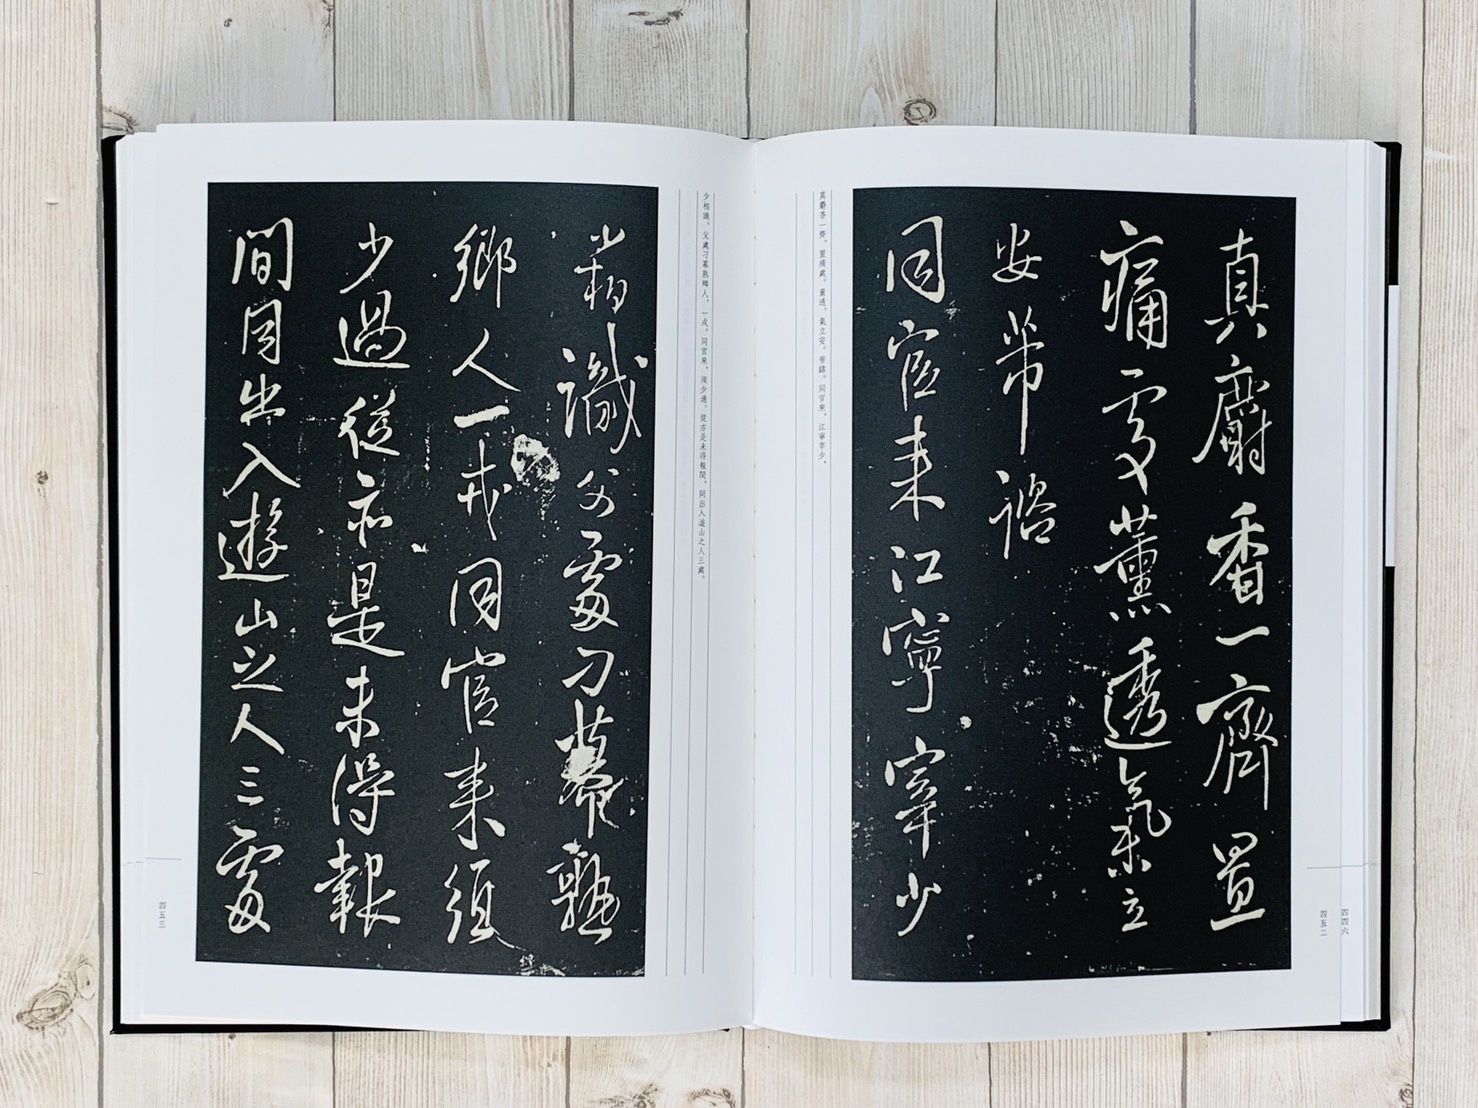 真麝香一齊置
痛處薰透氣立
安芾諮
同官来江寧宰少
真麝香一齊，置痛處。薰透，氣立安。芾諮。同官來，江寧宰少，
四四六
四五二
相識父處刁墓熟
鄉人一戎同官来須
少過從亦是未得報
間同出入遊山之人三處
少相識。父處刁墓熟鄉人，一戎。同官來，須少過。從亦是未得報間，同出入遊山之人三處。
四五三